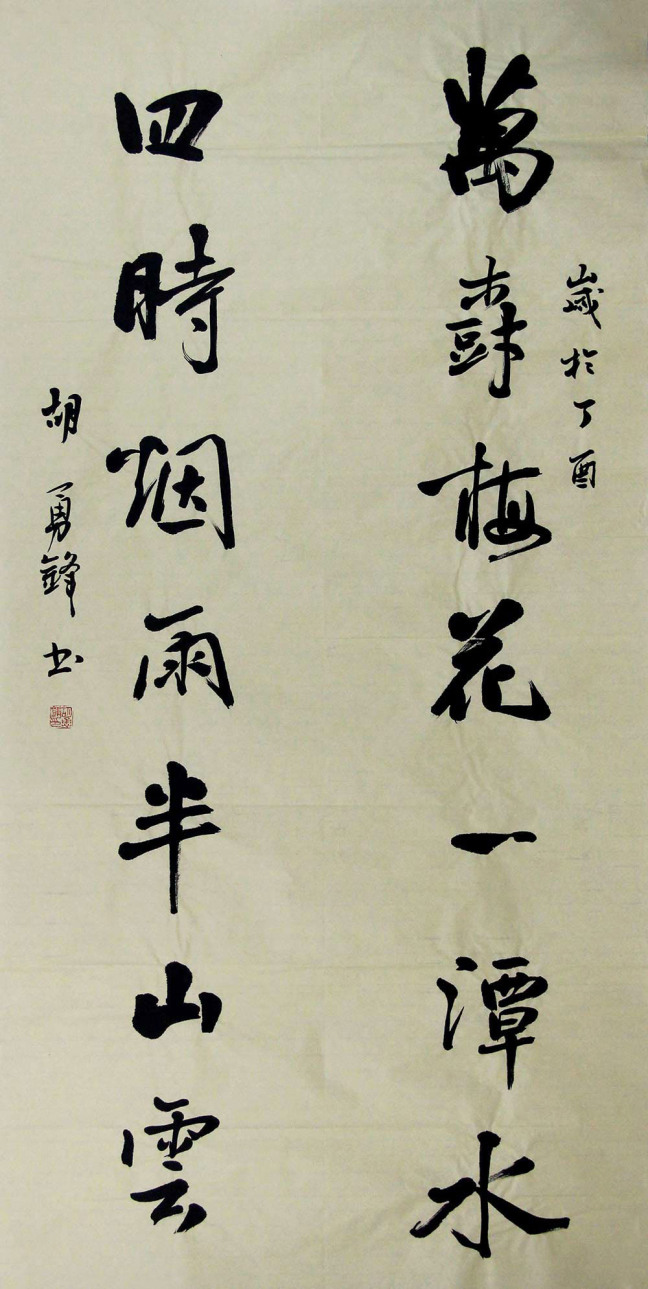 歲於丁酉
萬樹梅花一潭水
四時烟雨半山雲
胡勇鋒书